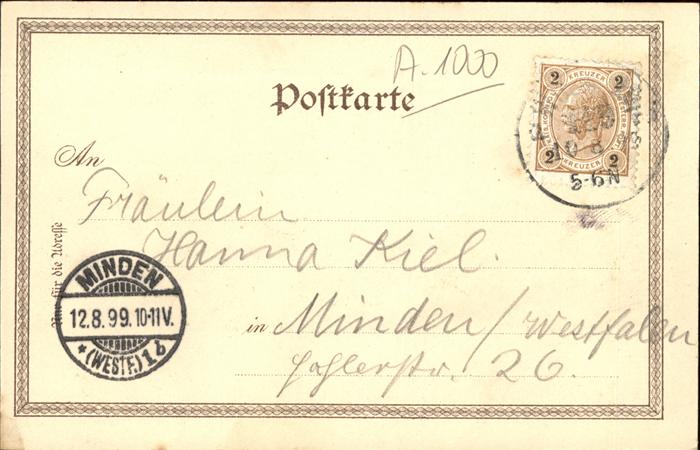 A. 1000
Postkarte
2 KREUZER 2
2 KREUZER 2
10 8
5-6 N
An
Fräulein
Hanna Kiel.
Nur für die Adresse
in Minden/Westfalen
26.
MINDEN
12.8.99.10-11V.
* (WESTF.) 1 b